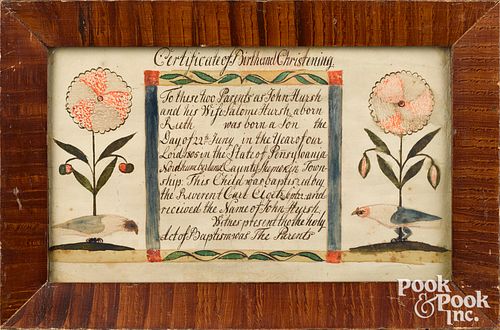 Certificate of Birth and Christening
To these two Parents as John Hursh
and his Wife Salome Hursh, aborn
Ruth was born a Son the
Day of 22th Juny in the Year of our
Lord 1802 in the State of Pensylvania
Northumberland Caunty Shemoken Town
ship: This Child was baptised by
the Reverent Carl
received the Name of John Hursh
Witnes present tho the holy
Act of Baptism was The Parents
POOK
& POOK
INC.